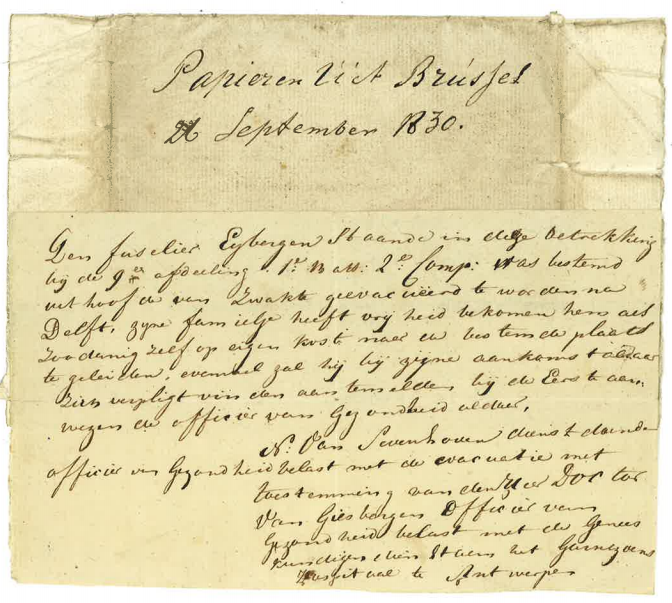 Papieren Uit Brussel
26 September 1830.
Den fuselier Eybergen Staande in deze betrekking
bij de 9e afdeeling 1e Batt: 2e Comp: was bestemd
uit hoof de van Zwakte geevacueerd te worden na
Delft, zyne familje heeft vrijheid bekomen hem als
zoodanig zelf op eigen kost naar de bestemde plaats
te geleiden, evenwel zal hij bij zijne aankomst aldaar
zich verpligt vinden aan temelden bij de Eerst aan-
wezen de officier van Gezondheid aldaar,
N. Van Sevenhoven dienst doende
officier van Gezondheid belast met de evacuatie met
toestemming van den Heer Doctor
Van Giesbergen Officier van
Gezondheid belast met de Genees
kundigen dienst aen het Garnizoens
Hospitaal te Antwerpen